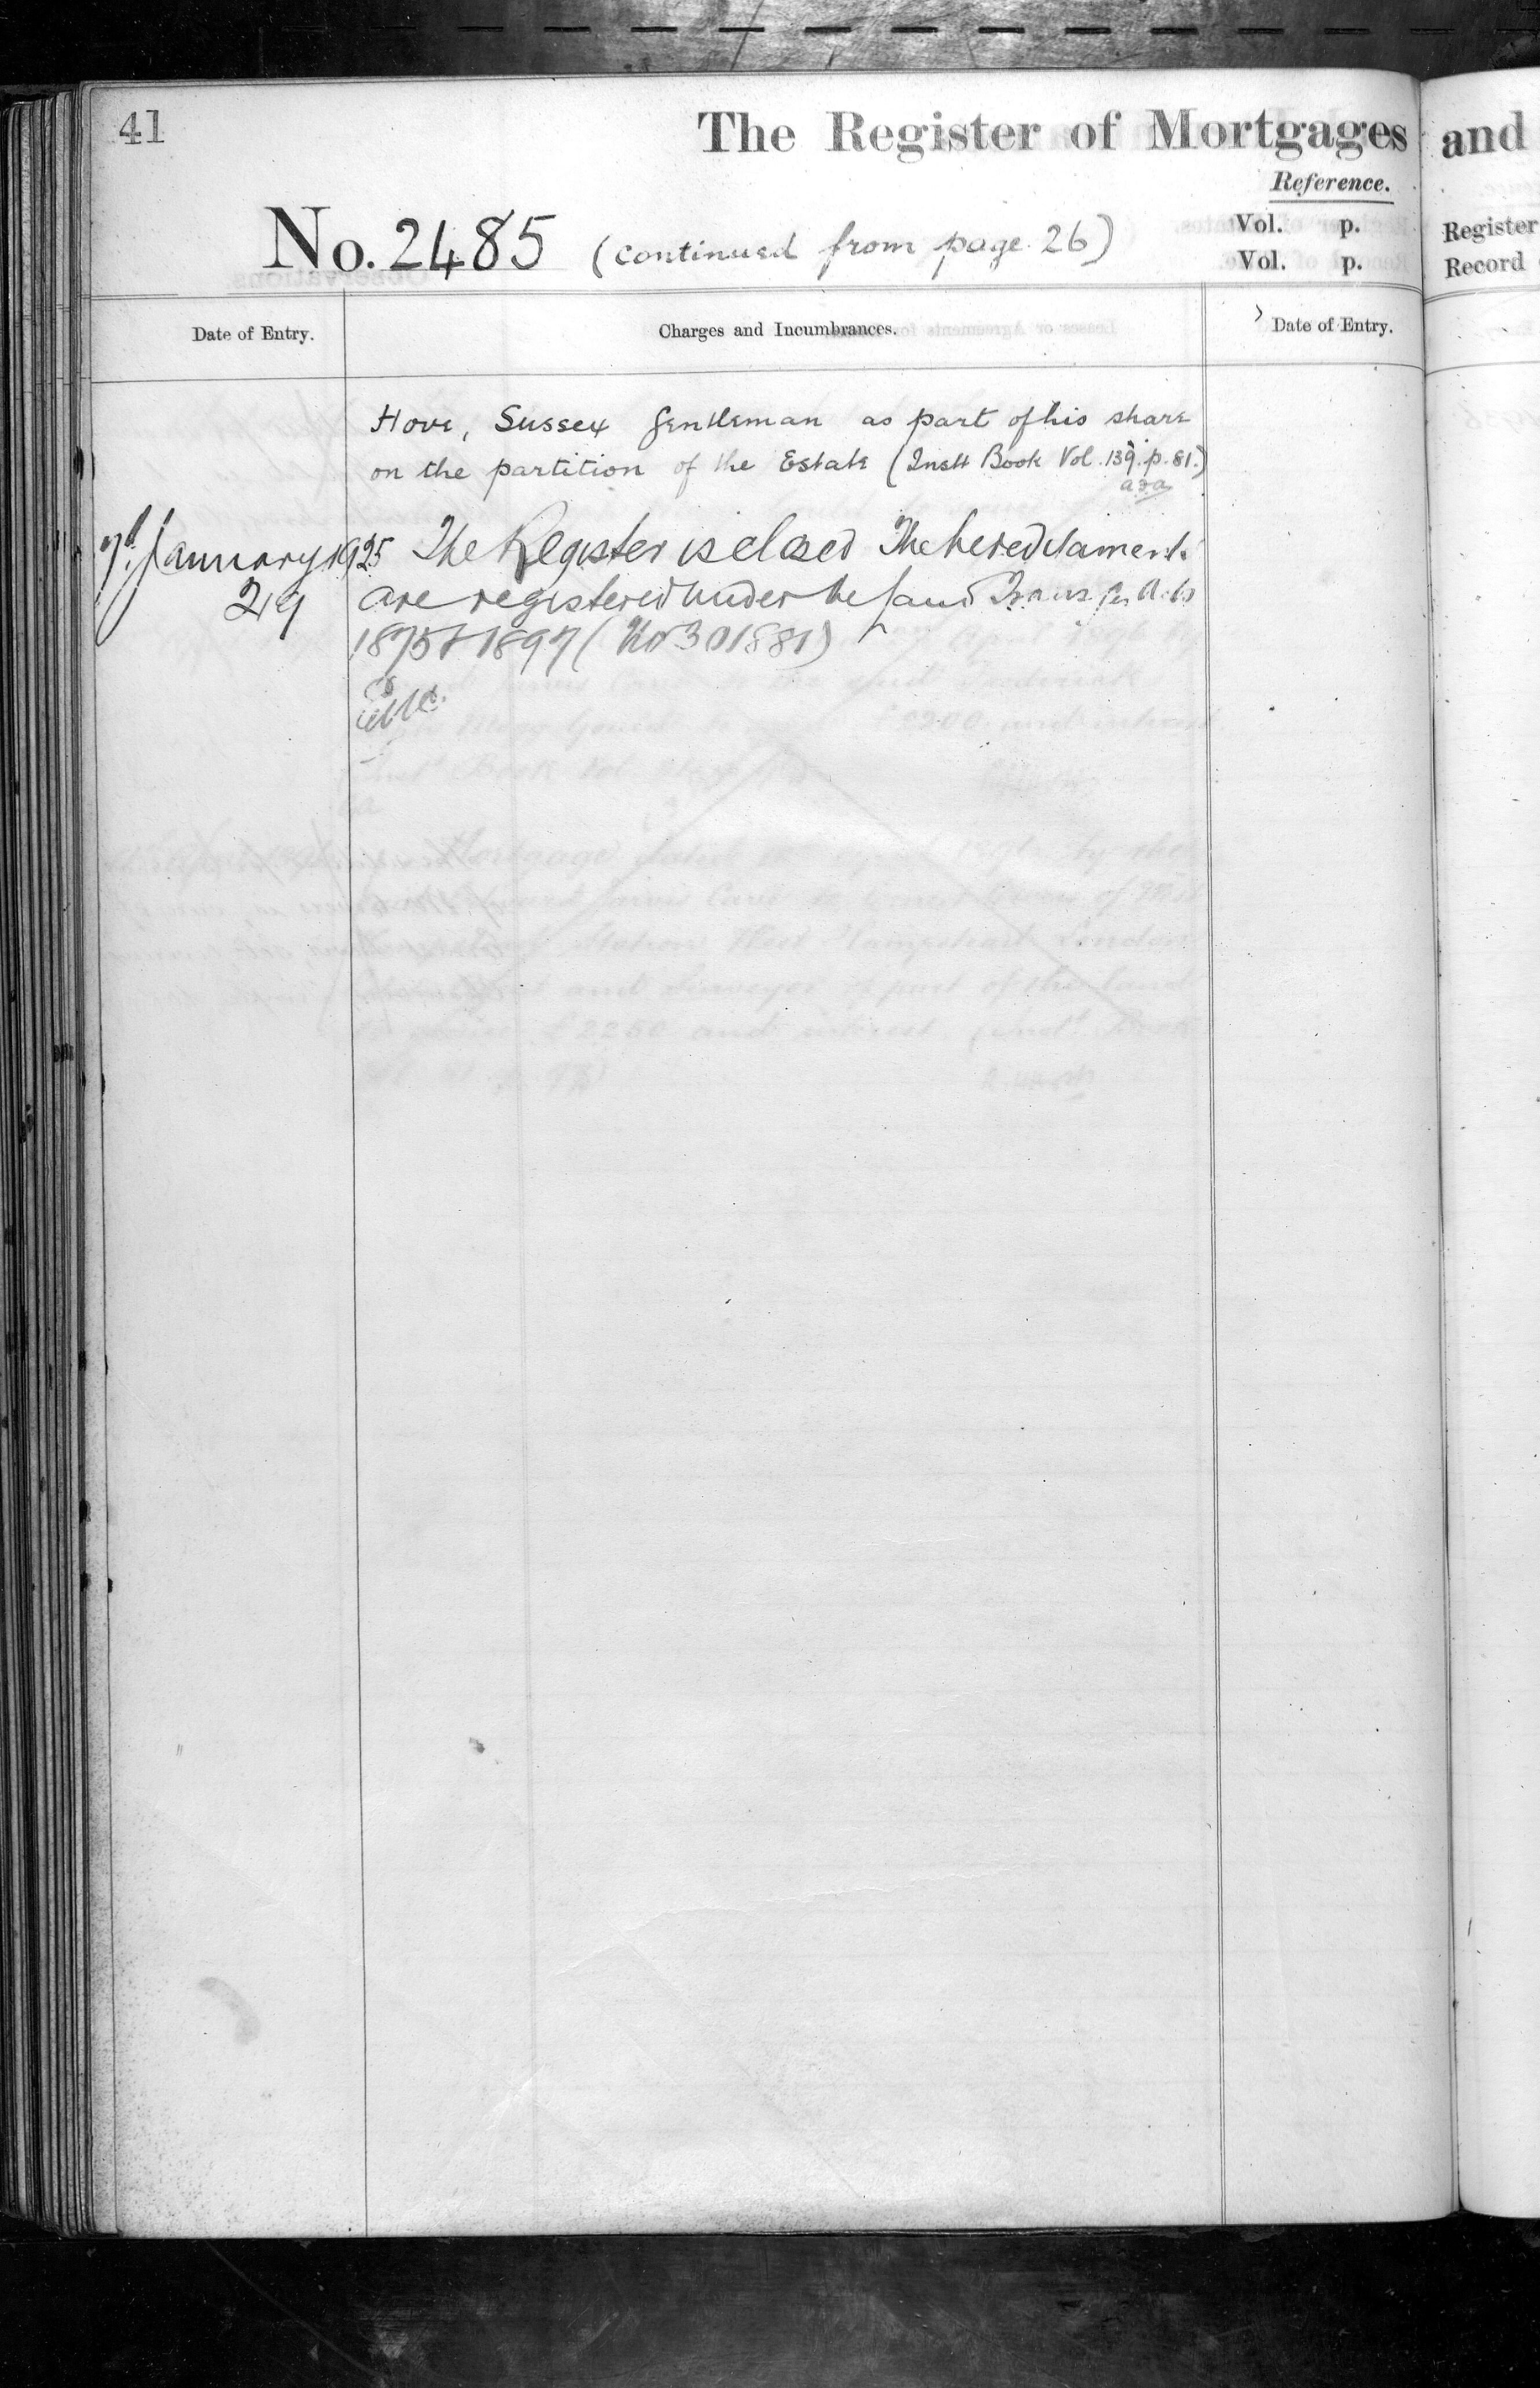 41
The Register of Mortgages and
Reference.
No. 2485 (continued from page 26)
Vol. p. Register
Vol. p. Record
Date of Entry. Charges and Incumbrances. Date of Entry.
Hove, Sussex Gentleman as part of his share
on the partition of the Estate (Instt Book Vol. 139. p. 81.)
7th January 1925 The Register is closed The hereditaments
219 are registered under the Land Transfer Acts
1875 & 1897 (No 301881)